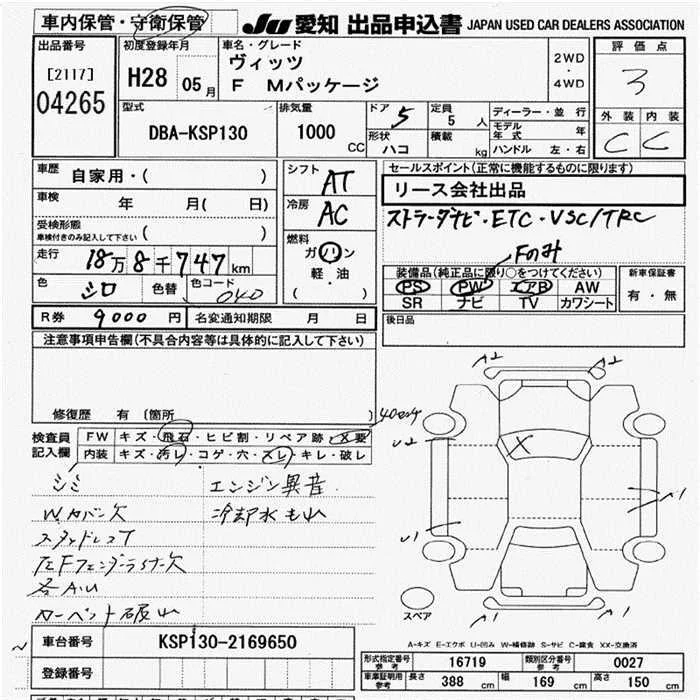 車内保管・守衛保管
JU 愛知 出品申込書 JAPAN USED CAR DEALERS ASSOCIATION
出品番号
[2117]
04265
初度登録年月
H28 05月
車名・グレード
ヴィッツ
F Mパッケージ
2WD
・
4WD
評価点
3
外装 内装
C C
型式
DBA-KSP130
排気量
1000
CC
ドア 5
形状 ハコ
定員
5 人
積載 kg
ディーラー・並行
モデル年式 年
ハンドル 左・右
車歴 自家用・( )
車検 年 月( 日)
受検形態
車検付きのみ記入して下さい ( )
走行 18万8千747km
色 シロ 色替 色コード 040
シフト AT
冷房 AC
燃料
ガソリン
軽・油
( )
セールスポイント(正常に機能するものに限ります)
リース会社出品
ストラーダナビ・ETC・VSC/TRC
Fのみ
装備品(純正品に限り○をつけてください)
PS PW エアB AW
SR ナビ TV カワシート
新車保証書
有・無
R券 9000 円 名変通知期限 月 日
後日品
注意事項申告欄(不具合内容等は具体的に記入して下さい)
修復歴 有 〔箇所 〕
検査員記入欄
FW キズ・飛石・ヒビ割・リペア跡・X要
内装 キズ・汚レ・コゲ・穴・スレ・キレ・破レ
シミ
エンジン異音
冷却水もれ
A2
A2
U2
X
A1
U1
A1
スペア
A-キズ E-エクボ U-凹み W-補修跡 S-サビ C-腐食 XX-交換済
車台番号 KSP130-2169650
登録番号
形式指定番号 参考 16719 類別区分番号 参考 0027
車庫証明用 参考 長さ 388 cm 幅 169 cm 高さ 150 cm